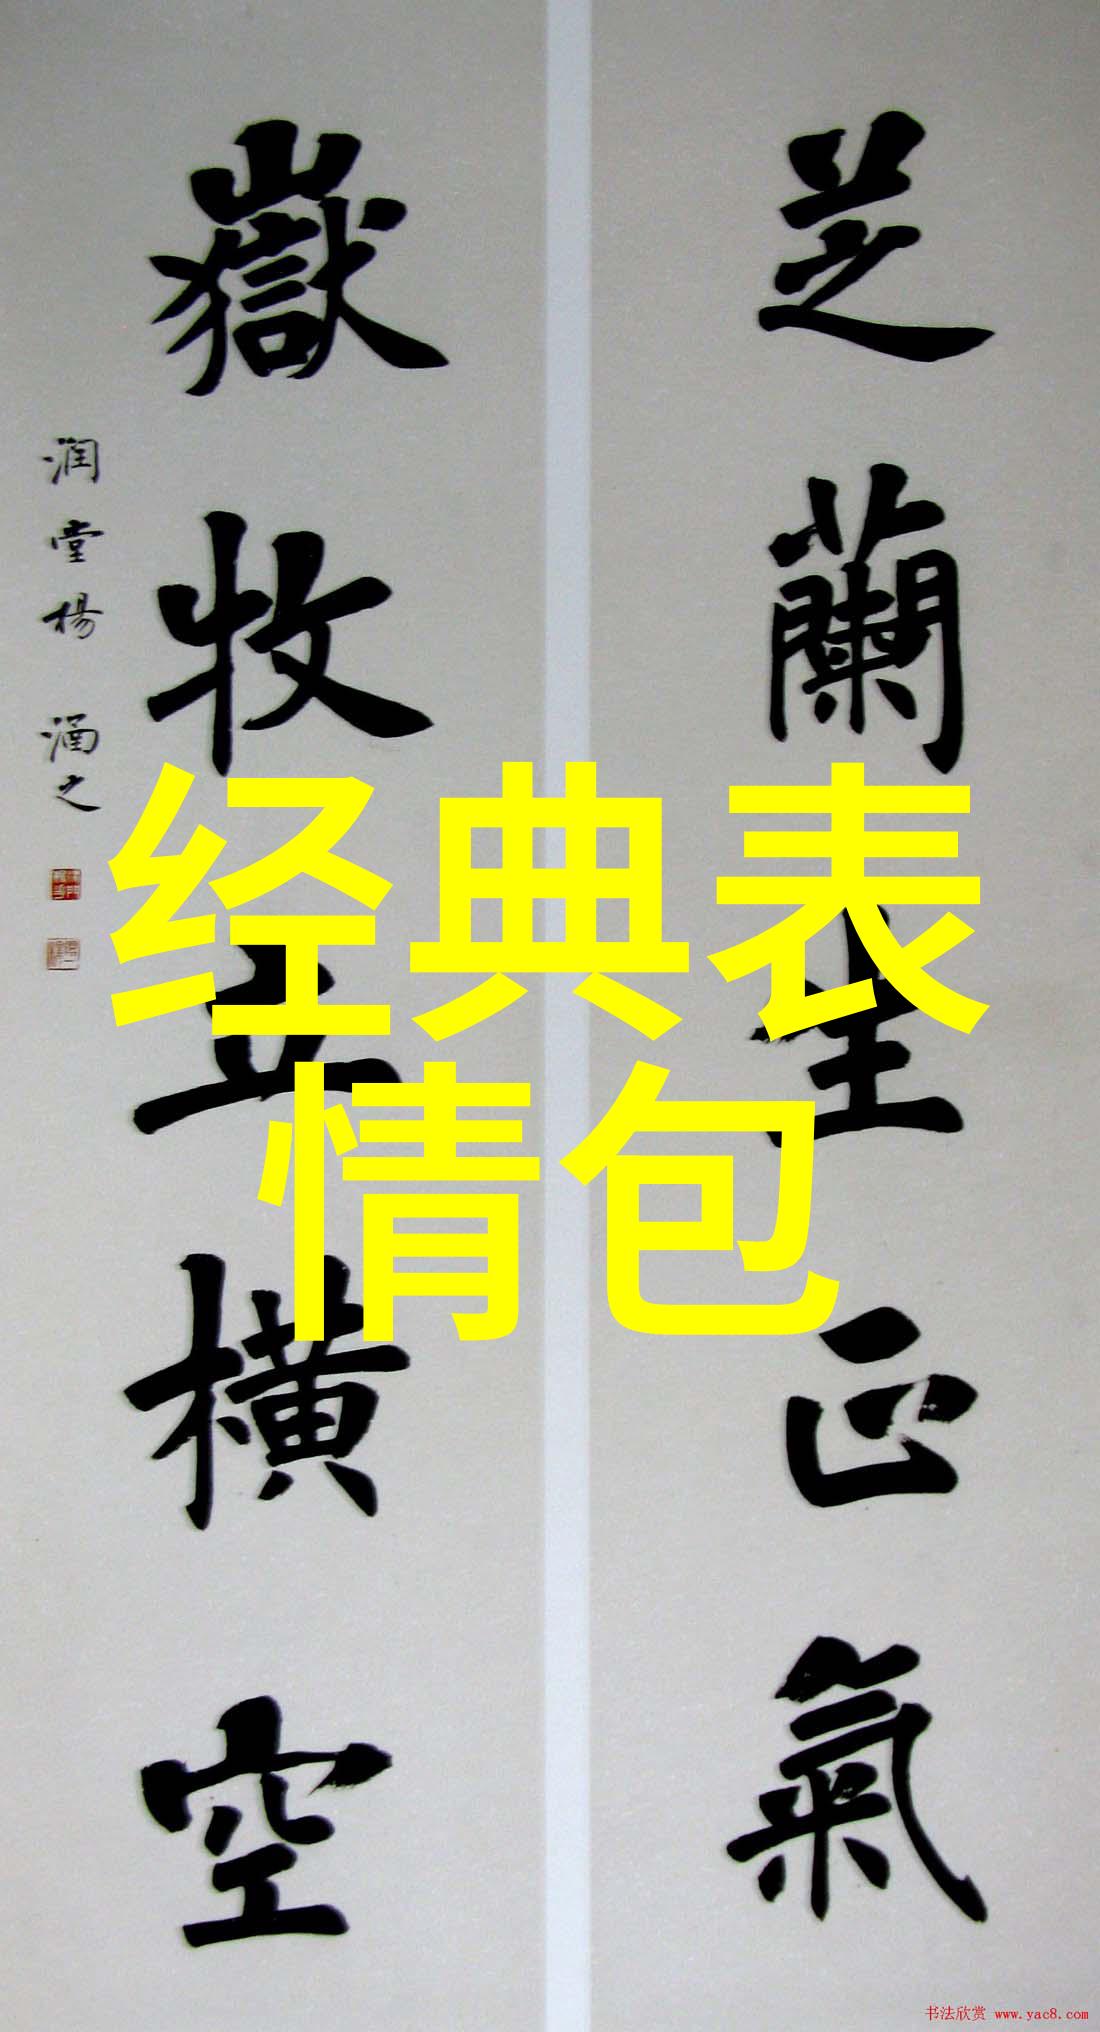 芝蘭生正氣
嶽牧立橫空
润堂楊涵之
经典表
情包
书法欣赏 www.yac8.com